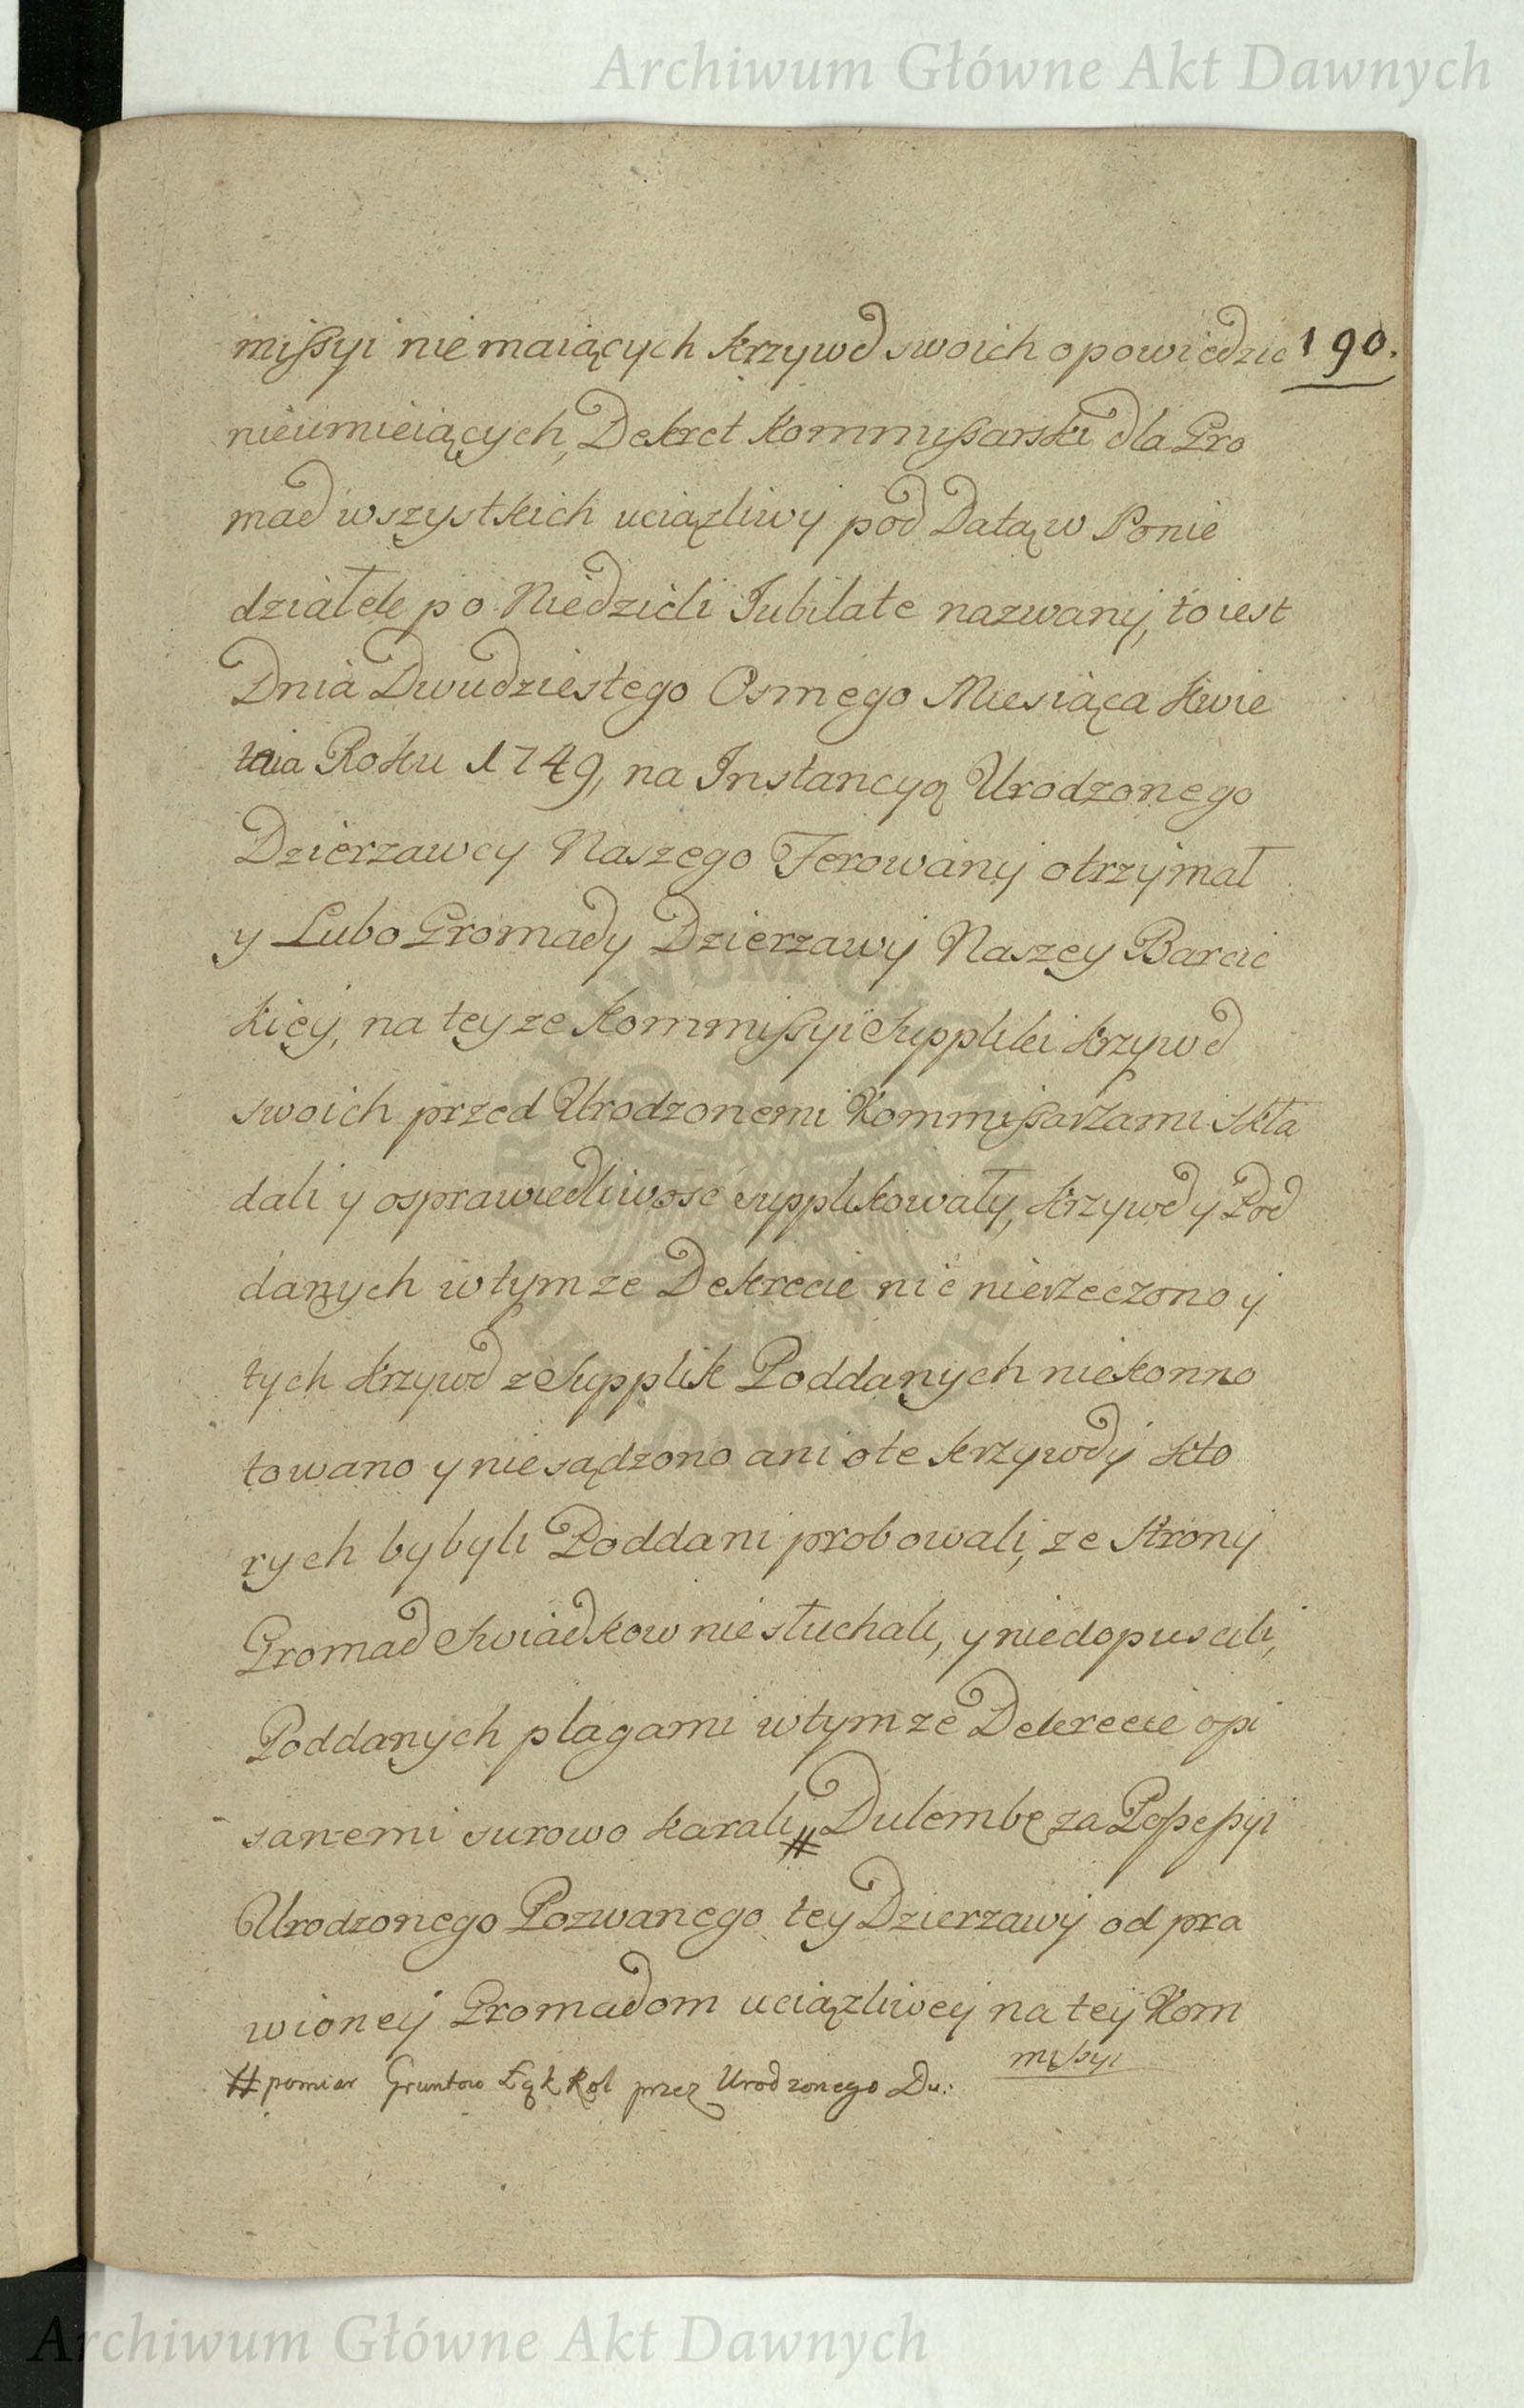 Archiwum Główne Akt Dawnych
190.
mißyi nie maiących krzywd swoich opowiedzic
nieumieiących, Dekret Kommißarski dla Gro
mad wszystkich uciązliwy pod Datą w Ponie
działek po Niedzieli Jubilate nazwany, to iest
Dnia Dwudziestego Osmego Miesiąca Kwie
tnia Roku 1749, na Instancyą Urodzonego
Dzierzawcy Naszego Ferowany otrzymał
y Lubo Gromady Dzierzawy Naszey Barcic
kiey, na teyze Kommißyi Suppliki krzywd
swoich przed Urodzonemi Kommißarzami skła
dali y osprawiedliwosc supplikowały, krzywdy Pod
danych wtymze Dekrecie nic nierzeczono y
tych krzywd z Supplik Poddanych niekonno
towano y niesądzono ani o te krzywdy kto
rych by byli Poddani probowali, ze strony
Gromad Swiadkow niesłuchali, y niedopuscili,
Poddanych plagami wtymze Dekrecie opi
sanemi surowo karali, # Dulembę za Poßeßyi
Urodzonego Pozwanego tey Dzierzawy od pra
wioney Gromadom uciązliwey na tey Kom
mißyi
# pomiar Gruntow Łąk Rol przez Urodzonego Du:
Archiwum Główne Akt Dawnych